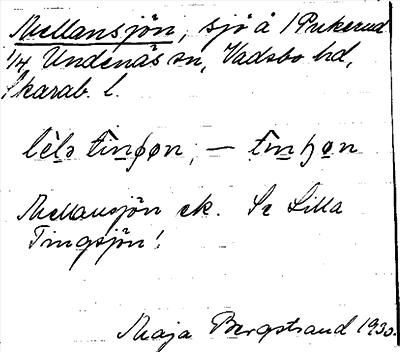 Mellansjön, sjö å 1 Pukerud
1/4 Undenäs sn, Vadsbo hd,
Skarab. l.
lèlə tinʃøn, – tinɧøn
Mellansjön ek. Se Lilla
Tingsjön!
Maja Bergstrand 1930.